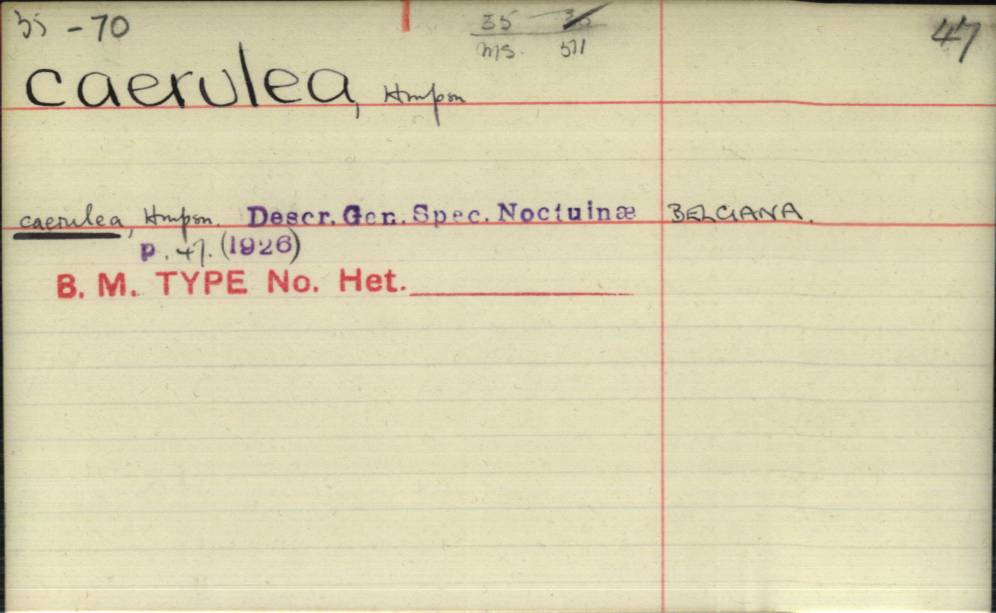 35 - 70
35
ms. 571
47
caerulea, Hmpsn
caerulea, Hmpsn. Descr. Gen. Spec. Noctuinæ BELCIANA.
p. 47. (1926)
B. M. TYPE No. Het.